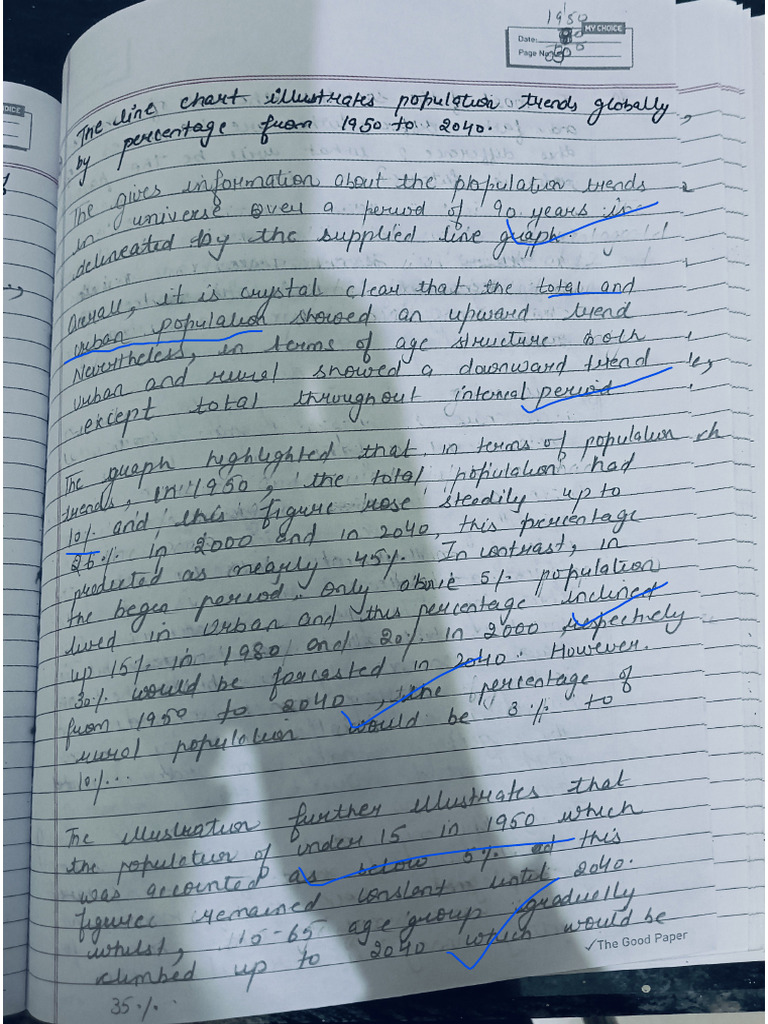 1950
MY CHOICE
Date:
Page No.
The line chart illustrates population trends globally,
by percentage from 1950 to 2040.
The gives information about the population trends
in universe over a period of 90 years is
delineated by the supplied line graph.
Overall, it is crystal clear that the total and
urban population showed an upward trend
Nevertheless, in terms of age structure both
urban and rural showed a downward trend
except total throughout interval period
The graph highlighted that in terms of population
trends, in 1950, the total population had
10% and this figure rose steedily up to
25% in 2000 and in 2040, this percentage
predicted as nearly 45%. In contrast, in
the begen period only above 5% population
lived in Urban and this percentage inclined
up 15% in 1980 and 20% in 2000 respectively
30% would be forcasted in 2040. However.
from 1950 to 2040, the percentage of
rural population would be 3% to
10%...
The illustration further illustrates that
the population of under 15 in 1950 which
was accounted as below 5% ad this
figure remained constent until 2040.
whilst, 15-65 age group gradually
climbed up to 2040 which would be
35%..
The Good Paper